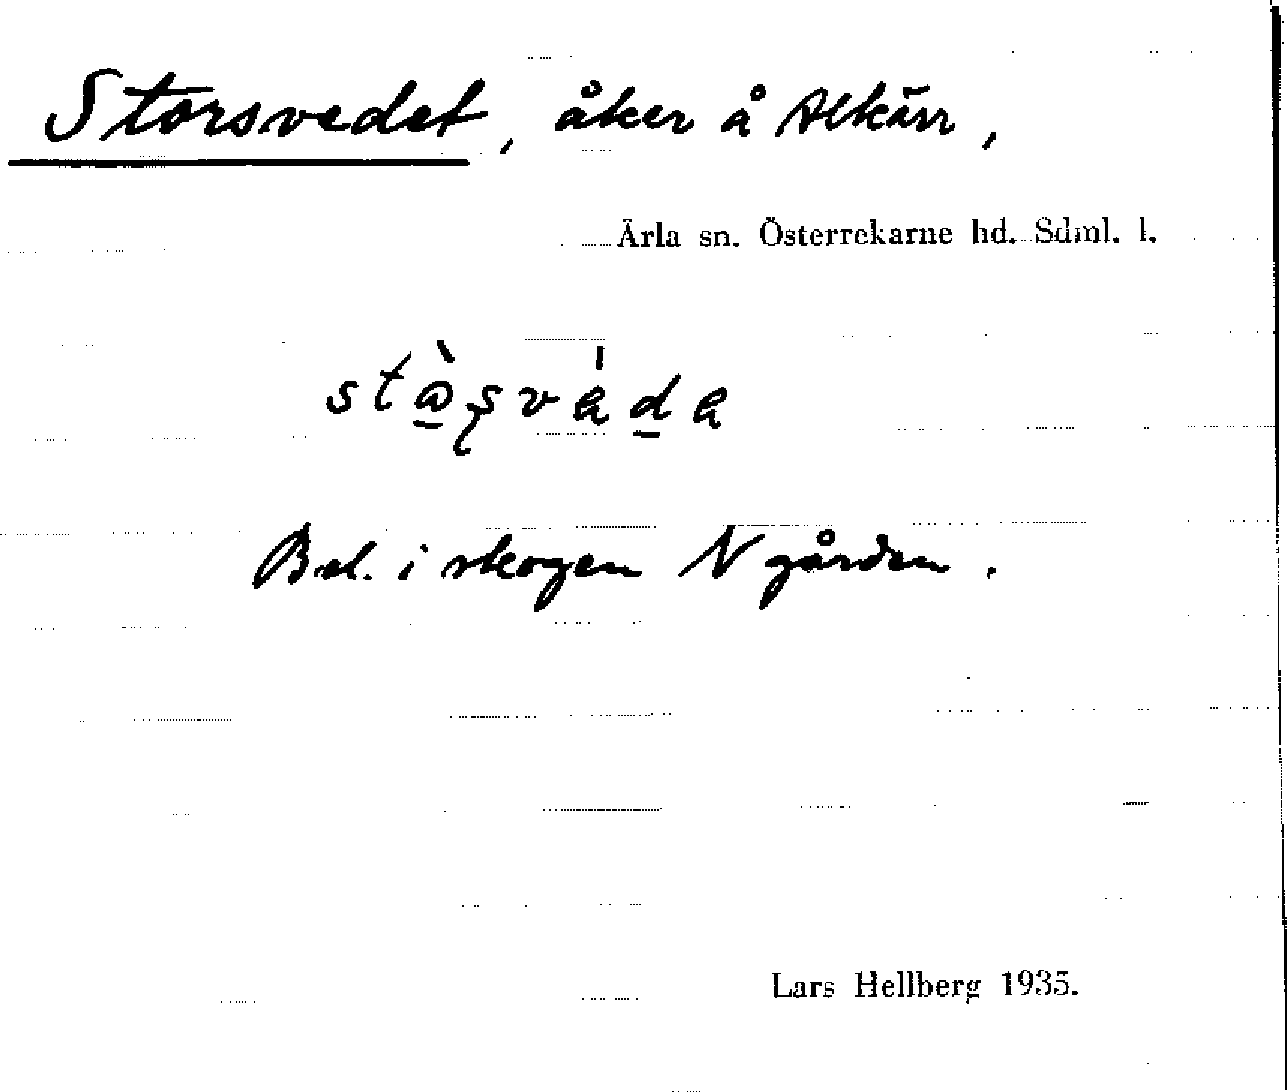 Storsvedet, åker å Alkärr,
Ärla sn. Österrekarne hd. Sdml. l.
Bel. i skogen N gården.
Lars Hellberg 1935.